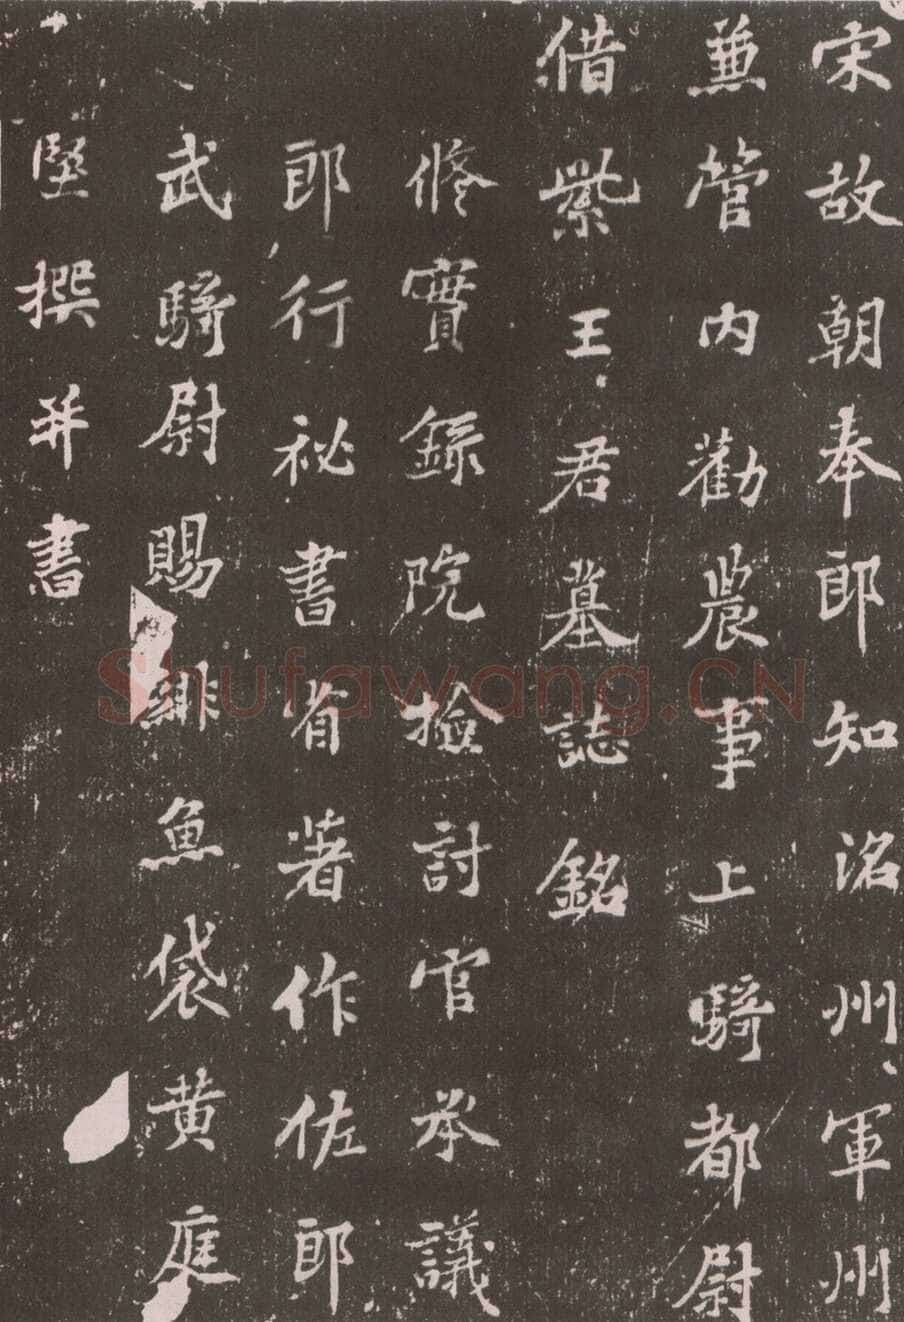 宋故朝奉郎知洺州軍州
兼管内勸農事上騎都尉
借紫王君墓誌銘
修實錄院檢討官承議
郎行祕書省著作佐郎
武騎尉賜緋魚袋黄庭
堅撰并書
Shufawang.CN